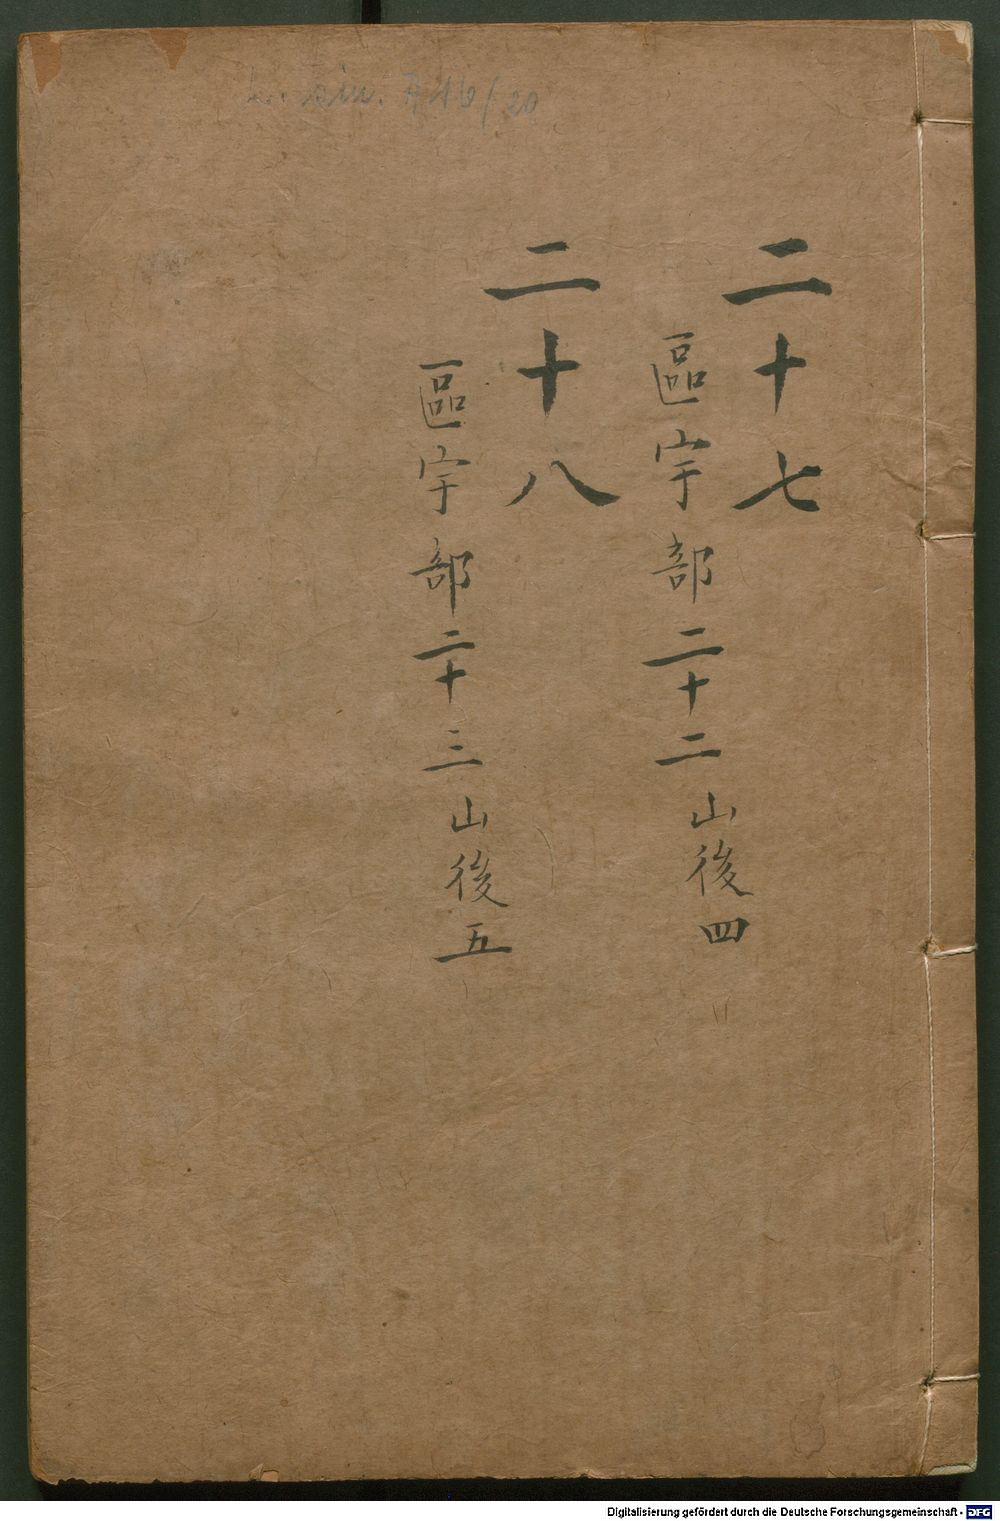 L. sin. A 16/20
二十七
區宇部二十二山後四
二十八
區宇部二十三山後五
Digitalisierung gefördert durch die Deutsche Forschungsgemeinschaft - DFG